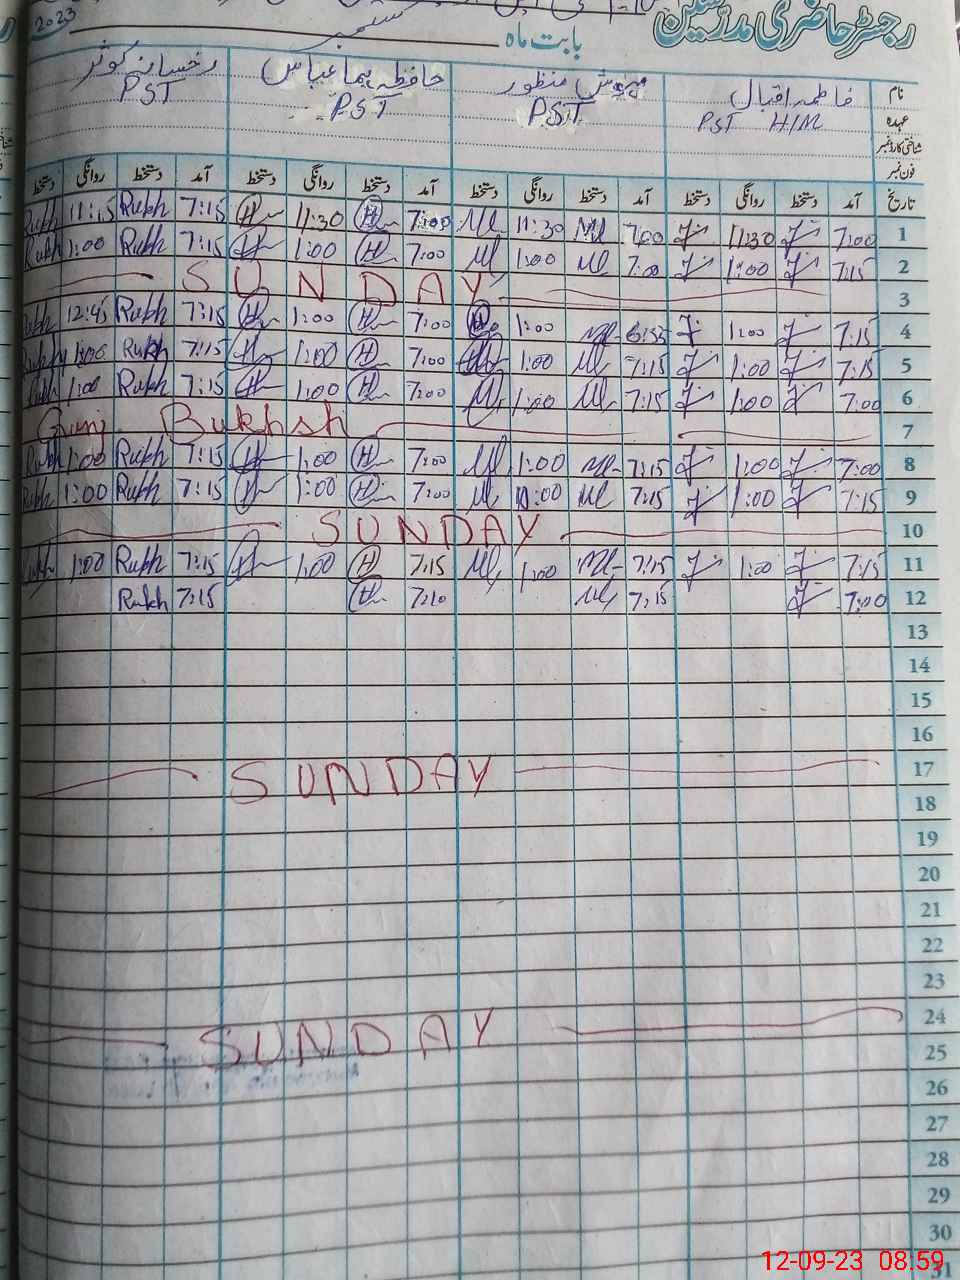 رجسٹر حاضری مدرسین
بابت ماہ ستمبر 2023
نام فاطمہ اقبال مہوش منظور حافظہ ہما عباس رخسانہ کوثر
عہدہ PST H/M PST PST PST
شناختی کارڈ نمبر
فون نمبر
تاریخ آمد دستخط روانگی دستخط آمد دستخط روانگی دستخط آمد دستخط روانگی دستخط آمد دستخط روانگی دستخط
1 7:00 11:30 7:00 11:30 7:00 11:30 7:15 Rukh 11:15 Rukh
2 7:15 1:00 7:00 1:00 7:00 1:00 7:15 Rukh 1:00 Rukh
3 SUNDAY
4 7:15 1:00 6:55 1:00 7:00 1:00 7:15 Rukh 12:45 Rukh
5 7:15 1:00 7:15 1:00 7:00 1:00 7:15 Rukh 1:00 Rukh
6 7:00 1:00 7:15 1:00 7:00 1:00 7:15 Rukh 1:00 Rukh
7 Gunj Bukhsh
8 7:00 1:00 7:15 1:00 7:00 1:00 7:15 Rukh 1:00 Rukh
9 7:15 1:00 7:15 1:00 7:00 1:00 7:15 Rukh 1:00 Rukh
10 SUNDAY
11 7:15 1:00 7:15 1:00 7:15 1:00 7:15 Rukh 1:00 Rukh
12 7:00 7:15 7:10 7:15 Rukh
13
14
15
16
17 SUNDAY
18
19
20
21
22
23
24 SUNDAY
25
26
27
28
29
30
31
12-09-23 08:59